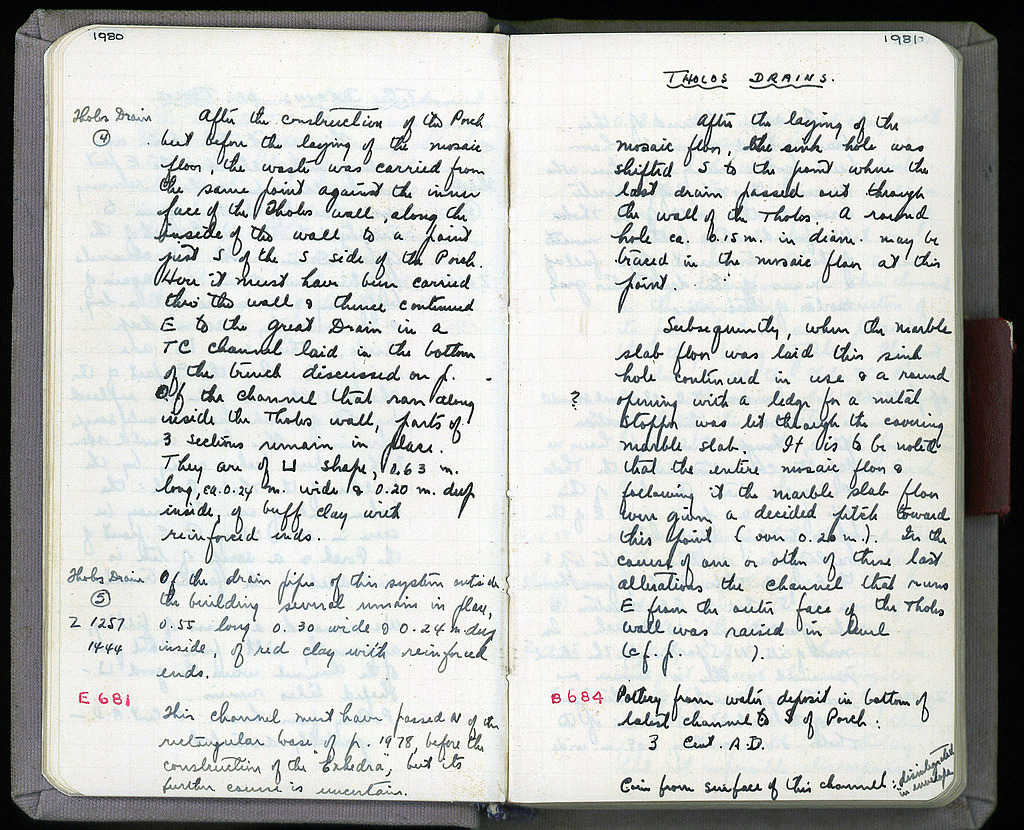 1980
Tholos Drain
4
After the construction of the Porch
but before the laying of the mosaic
floor, the waste was carried from
the same point against the inner
face of the Tholos wall, along the
inside of the wall to a point
just S of the S side of the Porch.
Here it must have been carried
thro the wall & thence continued
E to the Great Drain in a
TC channel laid in the bottom
of the trench discussed on p.     .
Of the channel that ran along
inside the Tholos wall, parts of
3 sections remain in place.
They are of U shape, 0.63 m.
long, ca. 0.24 m. wide & 0.20 m. deep
inside, of buff clay with
reinforced ends.
Tholos Drain
5
Z 1257
1444
Of the drain pipes of this system outside
the building several remain in place,
0.55 long 0.30 wide & 0.24 m. deep
inside, of red clay with reinforced
ends.
E 681
This channel must have passed N of the
rectangular base of p. 1978, before the
construction of the "Exhedra", but its
further course is uncertain.
1981
THOLOS DRAINS.
After the laying of the
mosaic floor, the sink hole was
shifted S to the point where the
last drain passed out through
the wall of the Tholos. A round
hole ca. 0.15 m. in diam. may be
traced in the mosaic floor at this
point.
Subsequently, when the marble
slab floor was laid this sink
hole continued in use & a round
? opening with a ledge for a metal
stopper was let through the covering
marble slab. It is to be noted
that the entire mosaic floor &
following it the marble slab floor
were given a decided pitch toward
this point (over 0.20 m.). In the
course of one or other of these last
alterations the channel that runs
E from the outer face of the Tholos
wall was raised in level
(cf. p.          ).
B 684 Pottery from water deposit in bottom of
latest channel to S of Porch.
3 Cent. A.D.
Coin from surface of this channel: disintegrated
in envelope